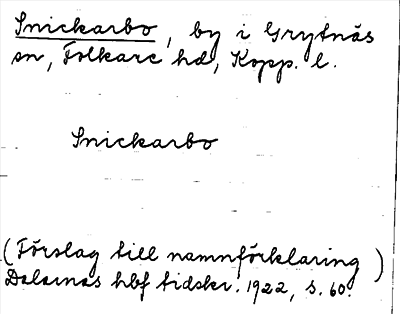 Snickarbo, by i Grytnäs
sn, Folkare hd, Kopp. l.
Snickarbo
(Förslag till namnförklaring)
Dalarnas hbf tidskr. 1922, s. 60.